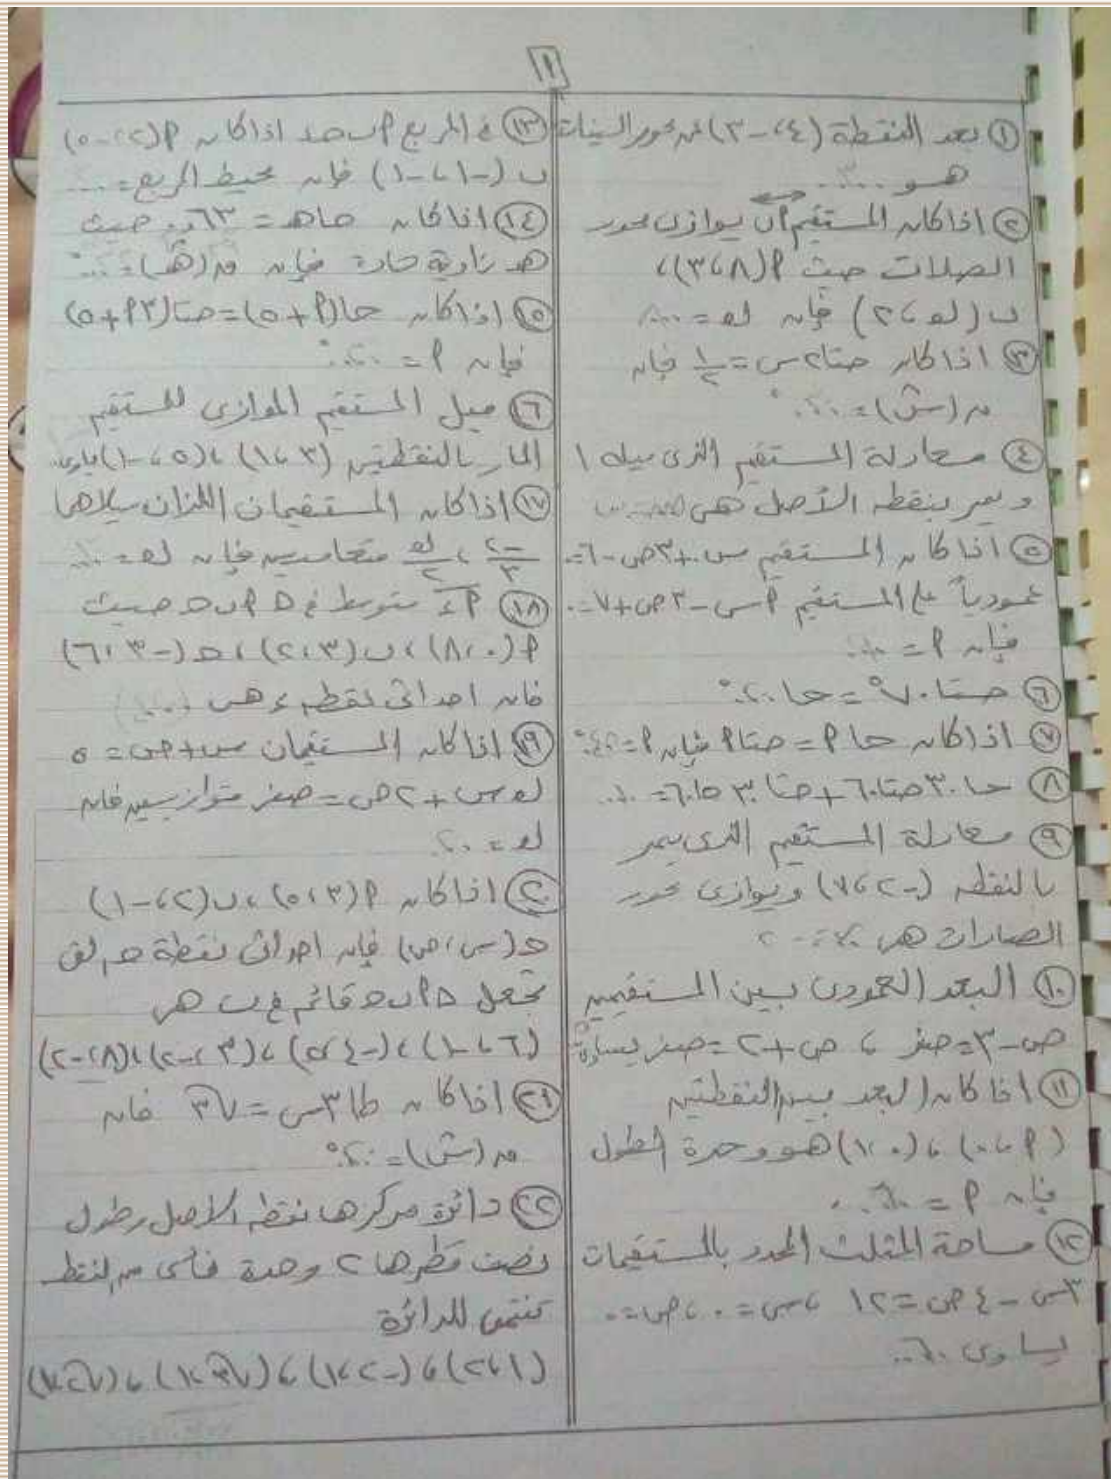 ١
① بعد النقطة (٤، -٣) عن محور السينات
هو ...٣...
② اذا كان المستقيم أب يوازى محور
الصادات حيث P(٨، ٣)،
ب (ك، ٢) فإن ك = ...٨
③ اذا كان حتا٢س = ١/٢ فإن
ص(س) = ...°
④ معادلة المستقيم الذى ميله ١
ويمر بنقطه الأصل هى
⑤ اذا كان المستقيم س + ٣ص - ٦ = ٠
عمودياً على المستقيم Pس - ٣ص + ٧ = ٠
فإن P = ...
⑥ حتا٧٠° = حا٢٠°
⑦ اذا كان حا P = حتا P فإن P = ٤٥°
⑧ حا٣٠ حتا٦٠ + حتا٣٠ حا٦٠ = ١
⑨ معادلة المستقيم الذى يمر
بالنقطه (-٢، ٧) ويوازى محور
الصادات هى
⑩ البعد العمودى بين المستقيمين
ص - ٣ = صفر ، ص + ٢ = صفر يساوى
⑪ اذا كان البعد بين النقطتين
(P، ٠) ، (٠، ١) هو وحدة الطول
فإن P = ...
⑫ مساحة المثلث المحدد بالمستقيمات
٣س - ٤ص = ١٢ ، س = ٠ ، ص = ٠
يساوى ..٦..
⑬ فى المربع P ب حـ د اذا كان P(٢، -٥)
ب (-١، -١) فإن محيط المربع = ....
⑭ اذا كان حاهـ = ٠.٦٣ حيث
هـ زاوية حادة فإن ص(هـ) = ...°
⑮ اذا كان حا(P + ٥) = حتا(٣P + ٥)
فإن P = ٢٠°
⑯ ميل المستقيم الموازى للمستقيم
المار بالنقطتين (٣، ١) ، (٥، -١) يساوى
⑰ اذا كان المستقيمان اللذان ميلاهما
-٢/٣ ، ك/٢ متعامدين فإن ك = ...
⑱ Pء متوسط فى △ P ب حـ حيث
P(٠، ٨) ، ب(٣، ٢) ، حـ(-٣، ٦)
فان احداثى نقطه ء هى
⑲ اذا كان المستقيمان س + ص = ٥
ك س + ٢ص = صفر متوازيين فان
ك = ٢
⑳ اذا كان P(٣، ٥) ، ب(٢، -١)
حـ(س، ص) فإن احداثى نقطة حـ التى
تجعل △ P ب حـ قائم فى ب هى
(٦، -١) ، (-٤، ٥) ، (٣، -٢) ، (٨، -٢)
㉑ اذا كان طا٣س = √٣ فان
ص(س) = ٢٠°
㉒ دائرة مركزها نقطه الأصل وطول
نصف قطرها ٢ وحدة فأى من النقط
تنتمى للدائرة
(١، ٢) ، (-٢، ١) ، (√٣، ١) ، (√٢، ١)